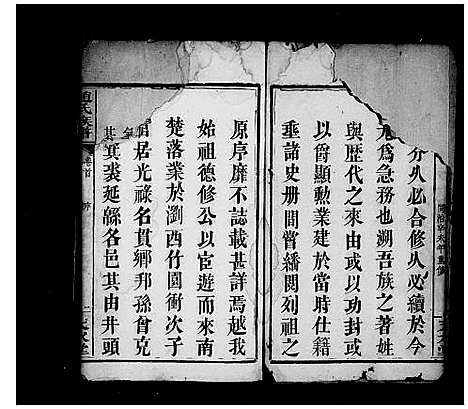 分㕥必合修㕥必續於今
尤為急務也溯吾族之著姓
與歴代之來由或以功封或
以爵顯勲業建於當時仕籍
垂諸史册間嘗繙閲列祖之
原序靡不誌載甚詳焉越我
始祖德修公以宦遊而來南
楚落業於瀏西竹園衝次子
居光祿名貫郷邦孫曾克
其裘延緜各邑其由井頭
趙氏族譜
卷首
序